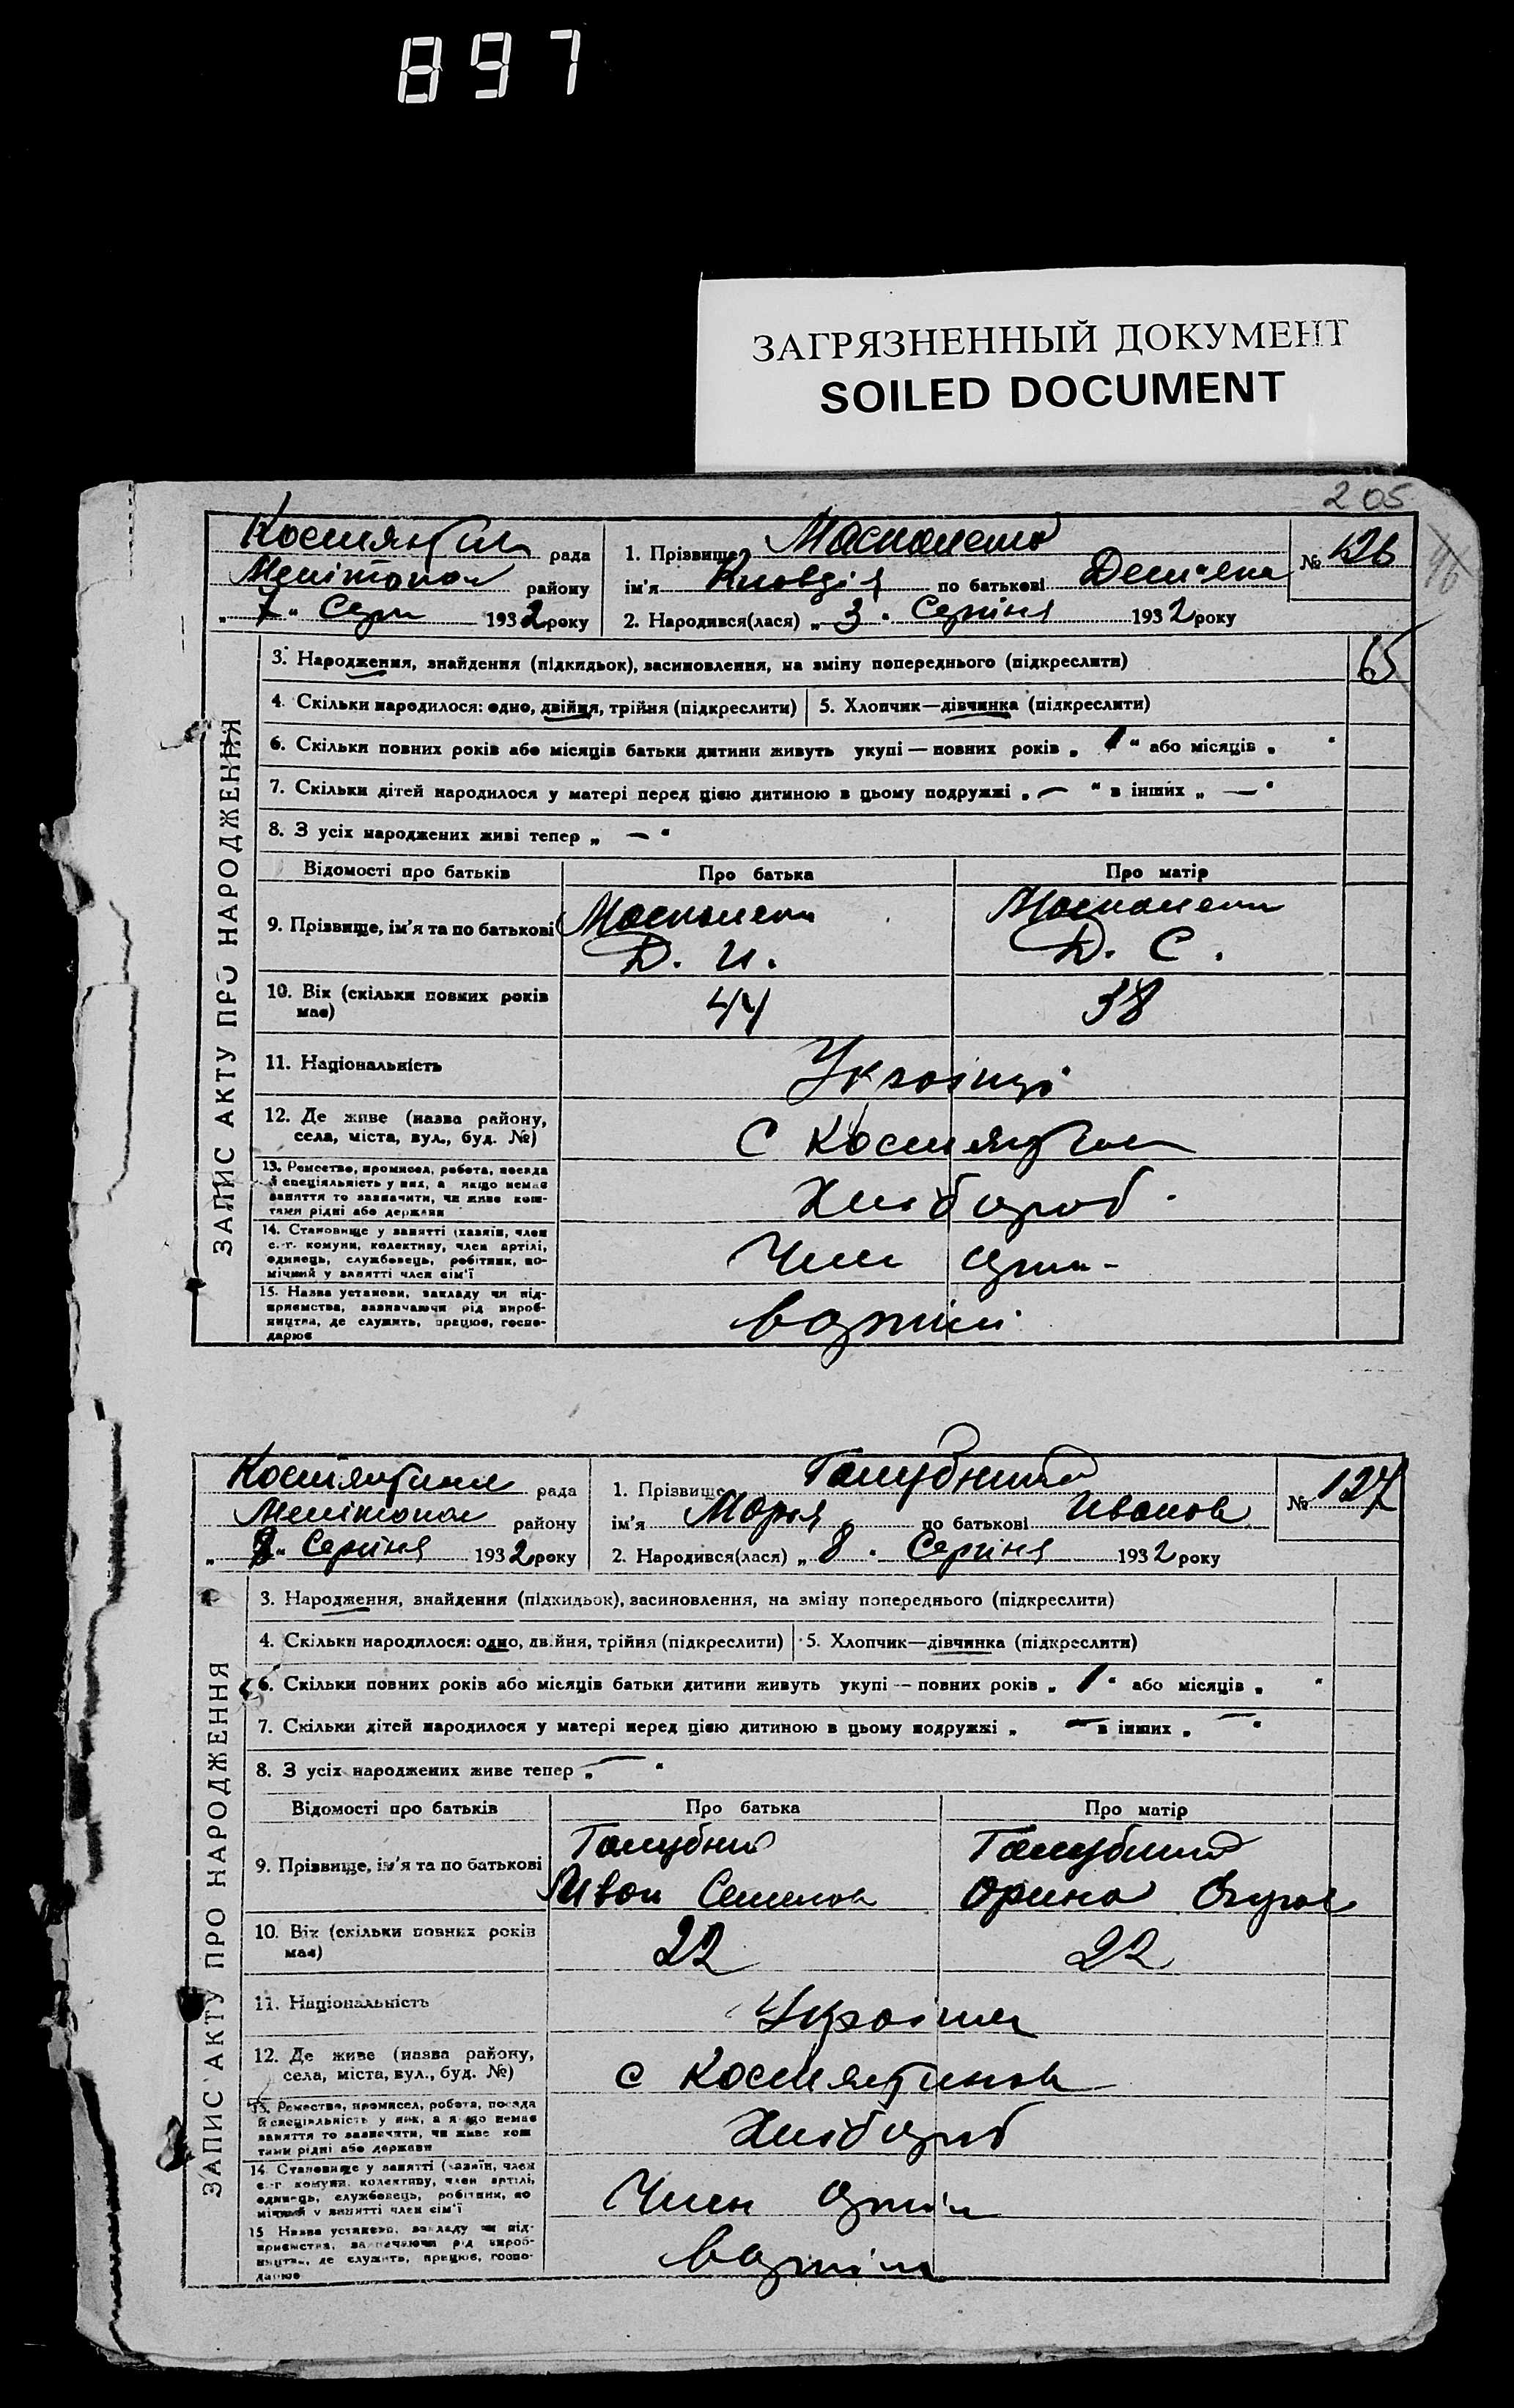 897
ЗАГРЯЗНЕННЫЙ ДОКУМЕНТ
SOILED DOCUMENT
205
рада
1. Прізвище
№ 126
району
ім'я Клавдія по батькові
„7“ Серп 1932 року
2. Народився(лася) „3“ Серпня 1932 року
3. Народження, знайдення (підкидьок), засиновлення, на зміну попереднього (підкреслити)
65
4. Скільки народилося: одно, двійня, трійня (підкреслити)
5. Хлопчик—дівчинка (підкреслити)
6. Скільки повних років або місяців батьки дитини живуть укупі — повних років „1“ або місяців „ “
7. Скільки дітей народилося у матері перед цією дитиною в цьому подружжі „—“ в інших „—“
8. З усіх народжених живі тепер „—“
ЗАПИС АКТУ ПРО НАРОДЖЕННЯ
Відомості про батьків
Про батька
Про матір
9. Прізвище, ім'я та по батькові
Д. И.
Д. С.
10. Вік (скільки повних років має)
44
38
11. Національність
Українці
12. Де живе (назва району,
села, міста, вул., буд. №)
13. Ремество, промисел, робота, посада
й спеціяльність у них, а якщо немає
заняття то зазначити, чи живе кош-
тами рідні або держави
Хлібороб
14. Становище у занятті (хазяїн, член
с.-г. комуни, колективу, член артілі,
одинець, службовець, робітник, по-
мічний у занятті член сім'ї
Член
15. Назва установи, закладу чи під-
приємства, зазначаючи рід вироб-
ництва, де служить, працює, госпо-
дарює
в артілі
рада
1. Прізвище
№ 127
району
ім'я Марія по батькові Иванов
Серпня 1932 року
2. Народився(лася) „8“ Серпня 1932 року
3. Народження, знайдення (підкидьок), засиновлення, на зміну попереднього (підкреслити)
4. Скільки народилося: одно, двійня, трійня (підкреслити)
5. Хлопчик—дівчинка (підкреслити)
6. Скільки повних років або місяців батьки дитини живуть укупі — повних років „1“ або місяців „ “
7. Скільки дітей народилося у матері перед цією дитиною в цьому подружжі „— в інших „—“
8. З усіх народжених живе тепер „—“
ЗАПИС АКТУ ПРО НАРОДЖЕННЯ
Відомості про батьків
Про батька
Про матір
9. Прізвище, ім'я та по батькові
Иван Семенов
Орина
10. Вік (скільки повних років має)
22
22
11. Національність
12. Де живе (назва району,
села, міста, вул., буд. №)
с Костянтинов
13. Ремество, промисел, робота, посада
й спеціяльність у них, а якщо немає
заняття то зазначити, чи живе кош
тами рідні або держави
Хлібороб
14. Становище у занятті (хазяїн, член
с.-г. комуни, колективу, член артілі,
одинець, службовець, робітник, по
мічний у занятті член сім'ї
Член артіл
15. Назва установи, закладу чи під-
приємства, зазначаючи рід вироб-
ництва, де служить, працює, госпо-
дарює
в артіли